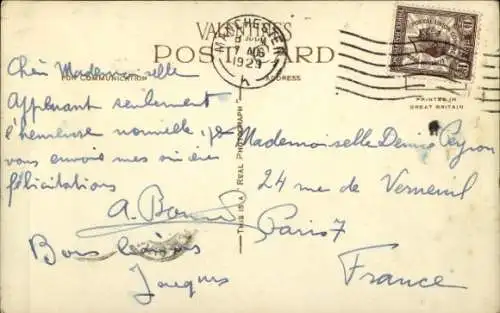 VALENTINES
POST CARD
FOR COMMUNICATION
ADDRESS
MANCHESTER
7 AUG
1929
POSTAL UNION
PRINTED IN
GREAT BRITAIN
THIS IS A REAL PHOTOGRAPH
Chère Mademoiselle
Apprenant seulement
l'heureuse nouvelle, je
vous envoie mes sincères
félicitations
Bons
Jacques
Mademoiselle Denise Peyron
24 rue de Verneuil
Paris 7
France